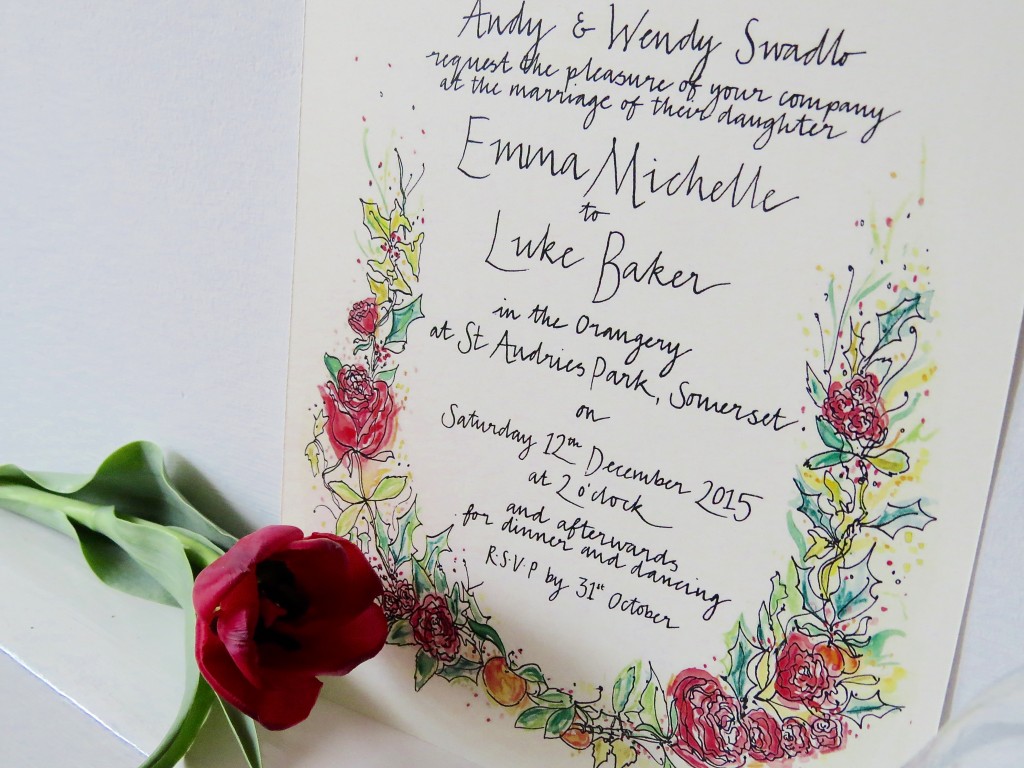 Andy & Wendy Swadlo
request the pleasure of your company
at the marriage of their daughter
Emma Michelle
to
Luke Baker
in the Orangery
at St Audries Park, Somerset.
on
Saturday 12th December 2015
at 2 o'clock
and afterwards
for dinner and dancing
R.S.V.P by 31st October